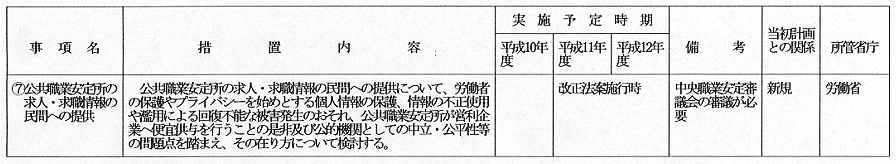 事項名
措置内容
実施予定時期
平成10年度
平成11年度
平成12年度
備考
当初計画との関係
所管省庁
⑦公共職業安定所の
求人・求職情報の
民間への提供
公共職業安定所の求人・求職情報の民間への提供について、労働者
の保護やプライバシーを始めとする個人情報の保護、情報の不正使用
や濫用による回復不能な被害発生のおそれ、公共職業安定所が営利企
業へ便宜供与を行うことの是非及び公的機関としての中立・公平性等
の問題点を踏まえ、その在り方について検討する。
改正法案施行時
中央職業安定審
議会の審議が必
要
新規
労働省